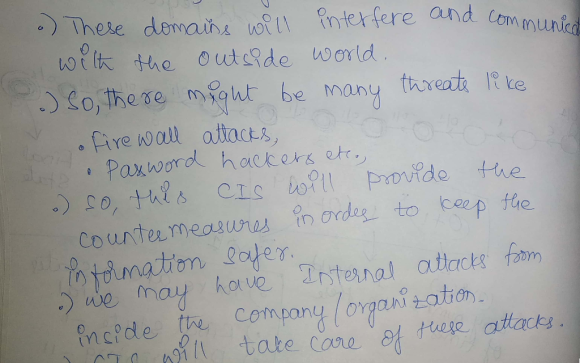 .) These domains will interfere and communica
with the outside world.
.) So, there might be many threats like
• Firewall attacks,
• Password hackers etc.,
.) so, this CIS will provide the
countermeasures in order to keep the
information safer.
.) we may have Internal attacks from
inside the company/organization.
.) CIS will take care of these attacks.